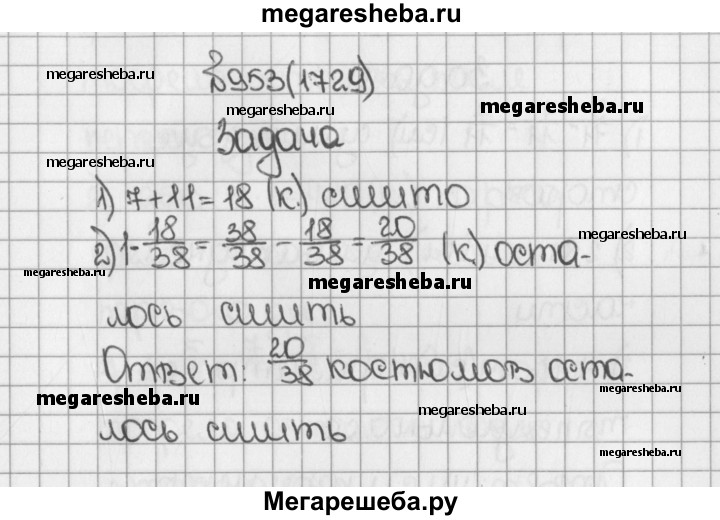 megaresheba.ru
№953(1729)
megaresheba.ru
megaresheba.ru
megaresheba.ru
Задача
megaresheba.ru
1) 7+11=18 (к.) сшито
2) 1-18/38=38/38-18/38=20/38 (к.) оста-
megaresheba.ru
megaresheba.ru
megaresheba.ru
лось сшить
Ответ: 20/38 костюмов оста-
megaresheba.ru
megaresheba.ru
megaresheba.ru
лось сшить
Мегарешеба.ру